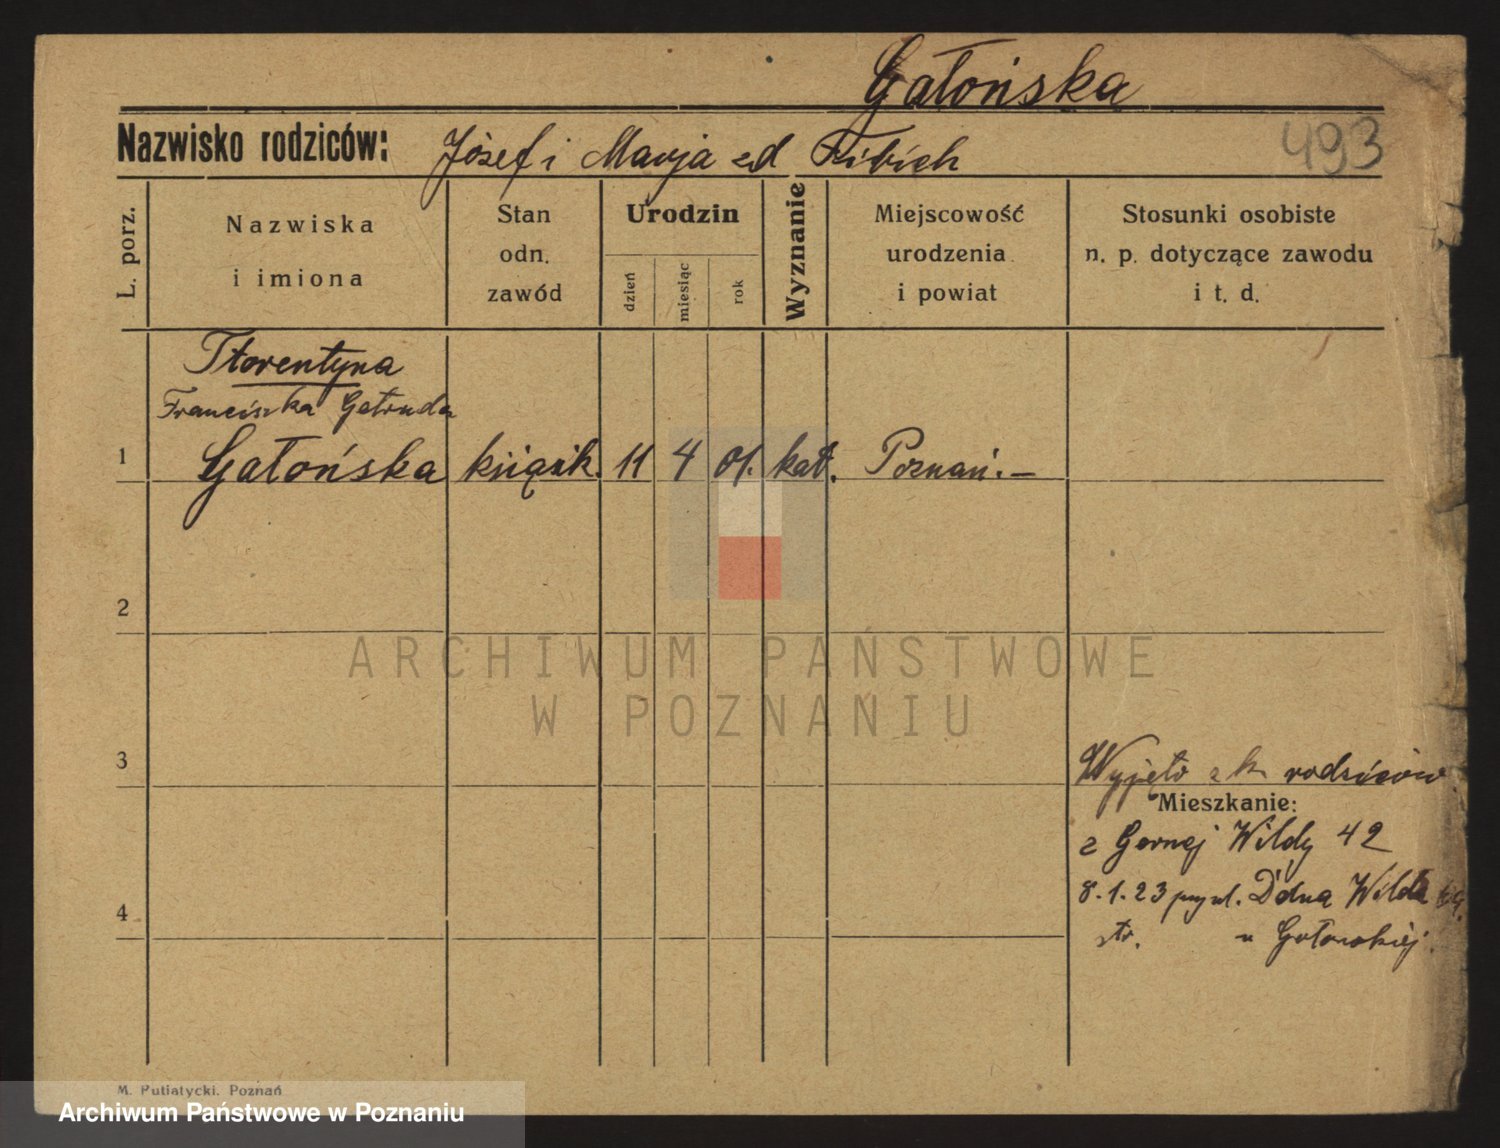 Gałońska
493
Nazwisko rodziców: Józef i Marja zd Fibich
L. porz.
Nazwiska i imiona
Stan odn. zawód
Urodzin
dzień
miesiąc
rok
Wyznanie
Miejscowość urodzenia i powiat
Stosunki osobiste n. p. dotyczące zawodu i t. d.
Florentyna
Franciszka Getruda
1 Gałońska książk. 11 4 01. kat. Poznań. —
2
ARCHIWUM PAŃSTWOWE
W POZNANIU
3
Wyjęto z k. rodziców
Mieszkanie:
z Gornej Wildy 42
4
8.1.23 Ddna Wilda
str. u
M. Putiatycki. Poznań
Archiwum Państwowe w Poznaniu